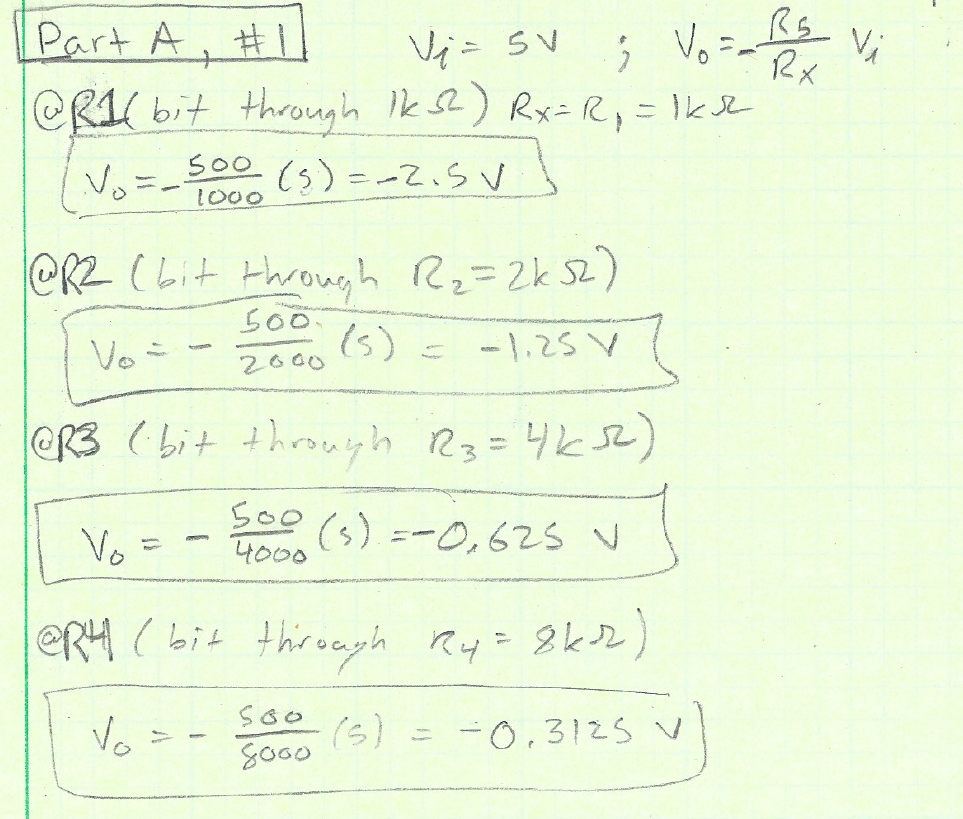 Part A, #1 Vi = 5V ; Vo = - R5/Rx Vi
@R1 (bit through 1kΩ) Rx = R1 = 1kΩ
Vo = - 500/1000 (5) = -2.5 V
@R2 (bit through R2 = 2kΩ)
Vo = - 500/2000 (5) = -1.25 V
@R3 (bit through R3 = 4kΩ)
Vo = - 500/4000 (5) = -0.625 V
@R4 (bit through R4 = 8kΩ)
Vo = - 500/8000 (5) = -0.3125 V